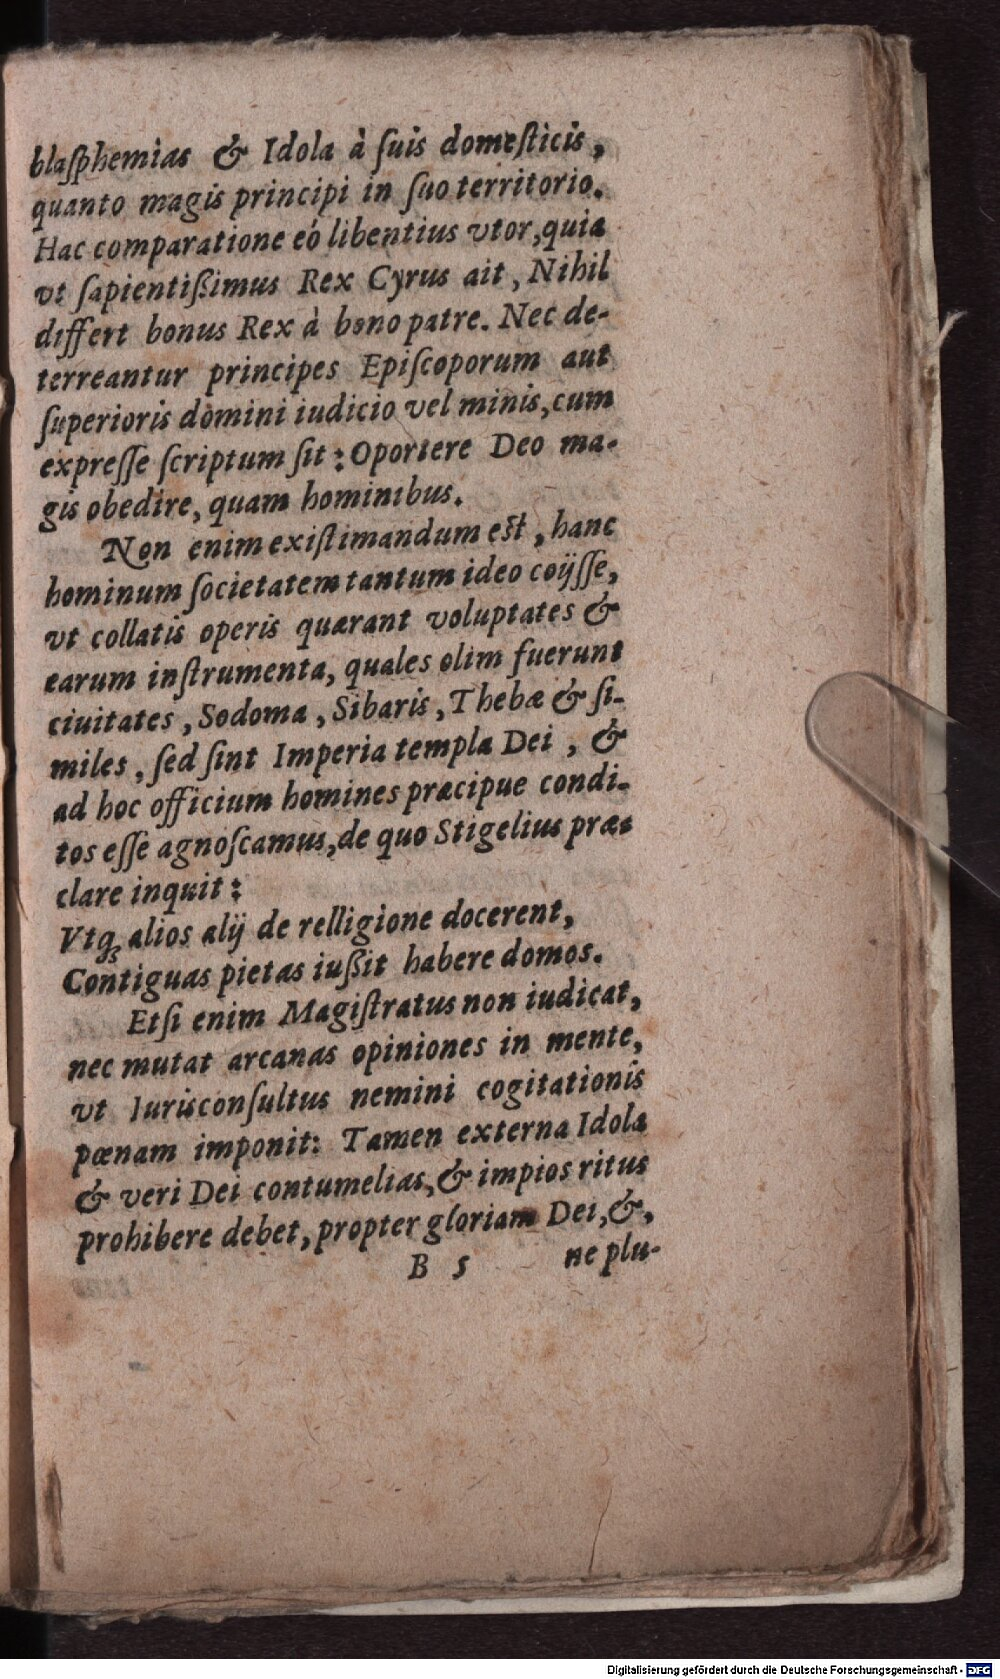 blaſphemias & Idola à ſuis domeſticis,
quanto magis principi in ſuo territorio.
Hac comparatione eó libentius vtor, quia
vt ſapientißimus Rex Cyrus ait, Nihil
differt bonus Rex à bono patre. Nec de-
terreantur principes Epiſcoporum aut
ſuperioris domini iudicio vel minis, cum
expreſſe ſcriptum ſit: Oportere Deo ma-
gis obedire, quam hominibus.
Non enim existimandum est, hanc
hominum ſocietatem tantum ideo coijſſe,
vt collatis operis quærant voluptates &
earum inſtrumenta, quales olim fuerunt
ciuitates, Sodoma, Sibaris, Thebæ & ſi-
miles, ſed ſint Imperia templa Dei, &
ad hoc officium homines præcipue condi-
tos eſſe agnoſcamus, de quo Stigelius præ-
clare inquit:
Vtq́ꝫ alios alij de relligione docerent,
Contiguas pietas iußit habere domos.
Etſi enim Magiſtratus non iudicat,
nec mutat arcanas opiniones in mente,
vt Iurisconſultus nemini cogitationis
pœnam imponit: Tamen externa Idola
& veri Dei contumelias, & impios ritus
prohibere debet, propter gloriam Dei, &,
B 5 ne plu-
Digitalisierung gefördert durch die Deutsche Forschungsgemeinschaft - DFG